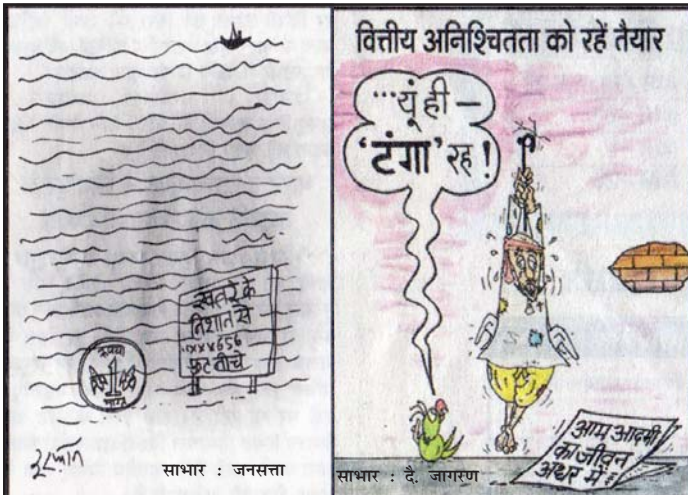 खतरे के
निशान से
xxx656
फुट नीचे
रूपया
1
भारत
साभार : जनसत्ता
वित्तीय अनिश्चितता को रहें तैयार
...यूं ही –
'टंगा' रह !
आम आदमी
का जीवन
अधर में
साभार : दै. जागरण